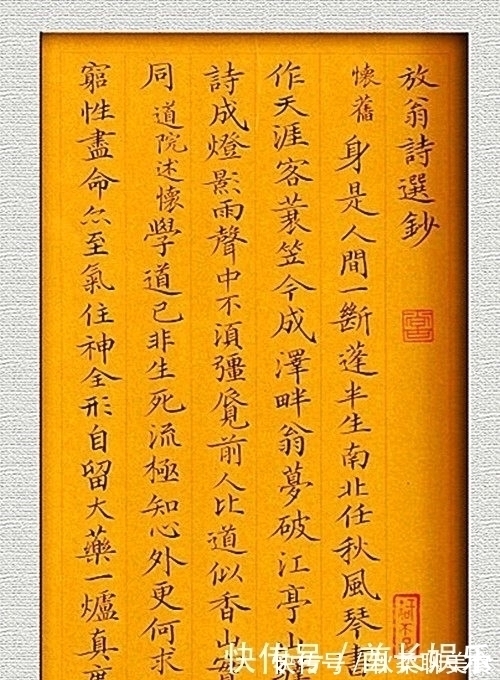 放翁詩選鈔
懷舊 身是人間一斷蓬半生南北任秋風琴書
作天涯客蓑笠今成澤畔翁夢破江亭山
詩成燈影雨聲中不湏彊覓前人比道似香山
同 道院述懷 學道已非生死流極知心外更何求
窮性盡命尔至氣住神全形自留大藥一爐真
快传号
快传号